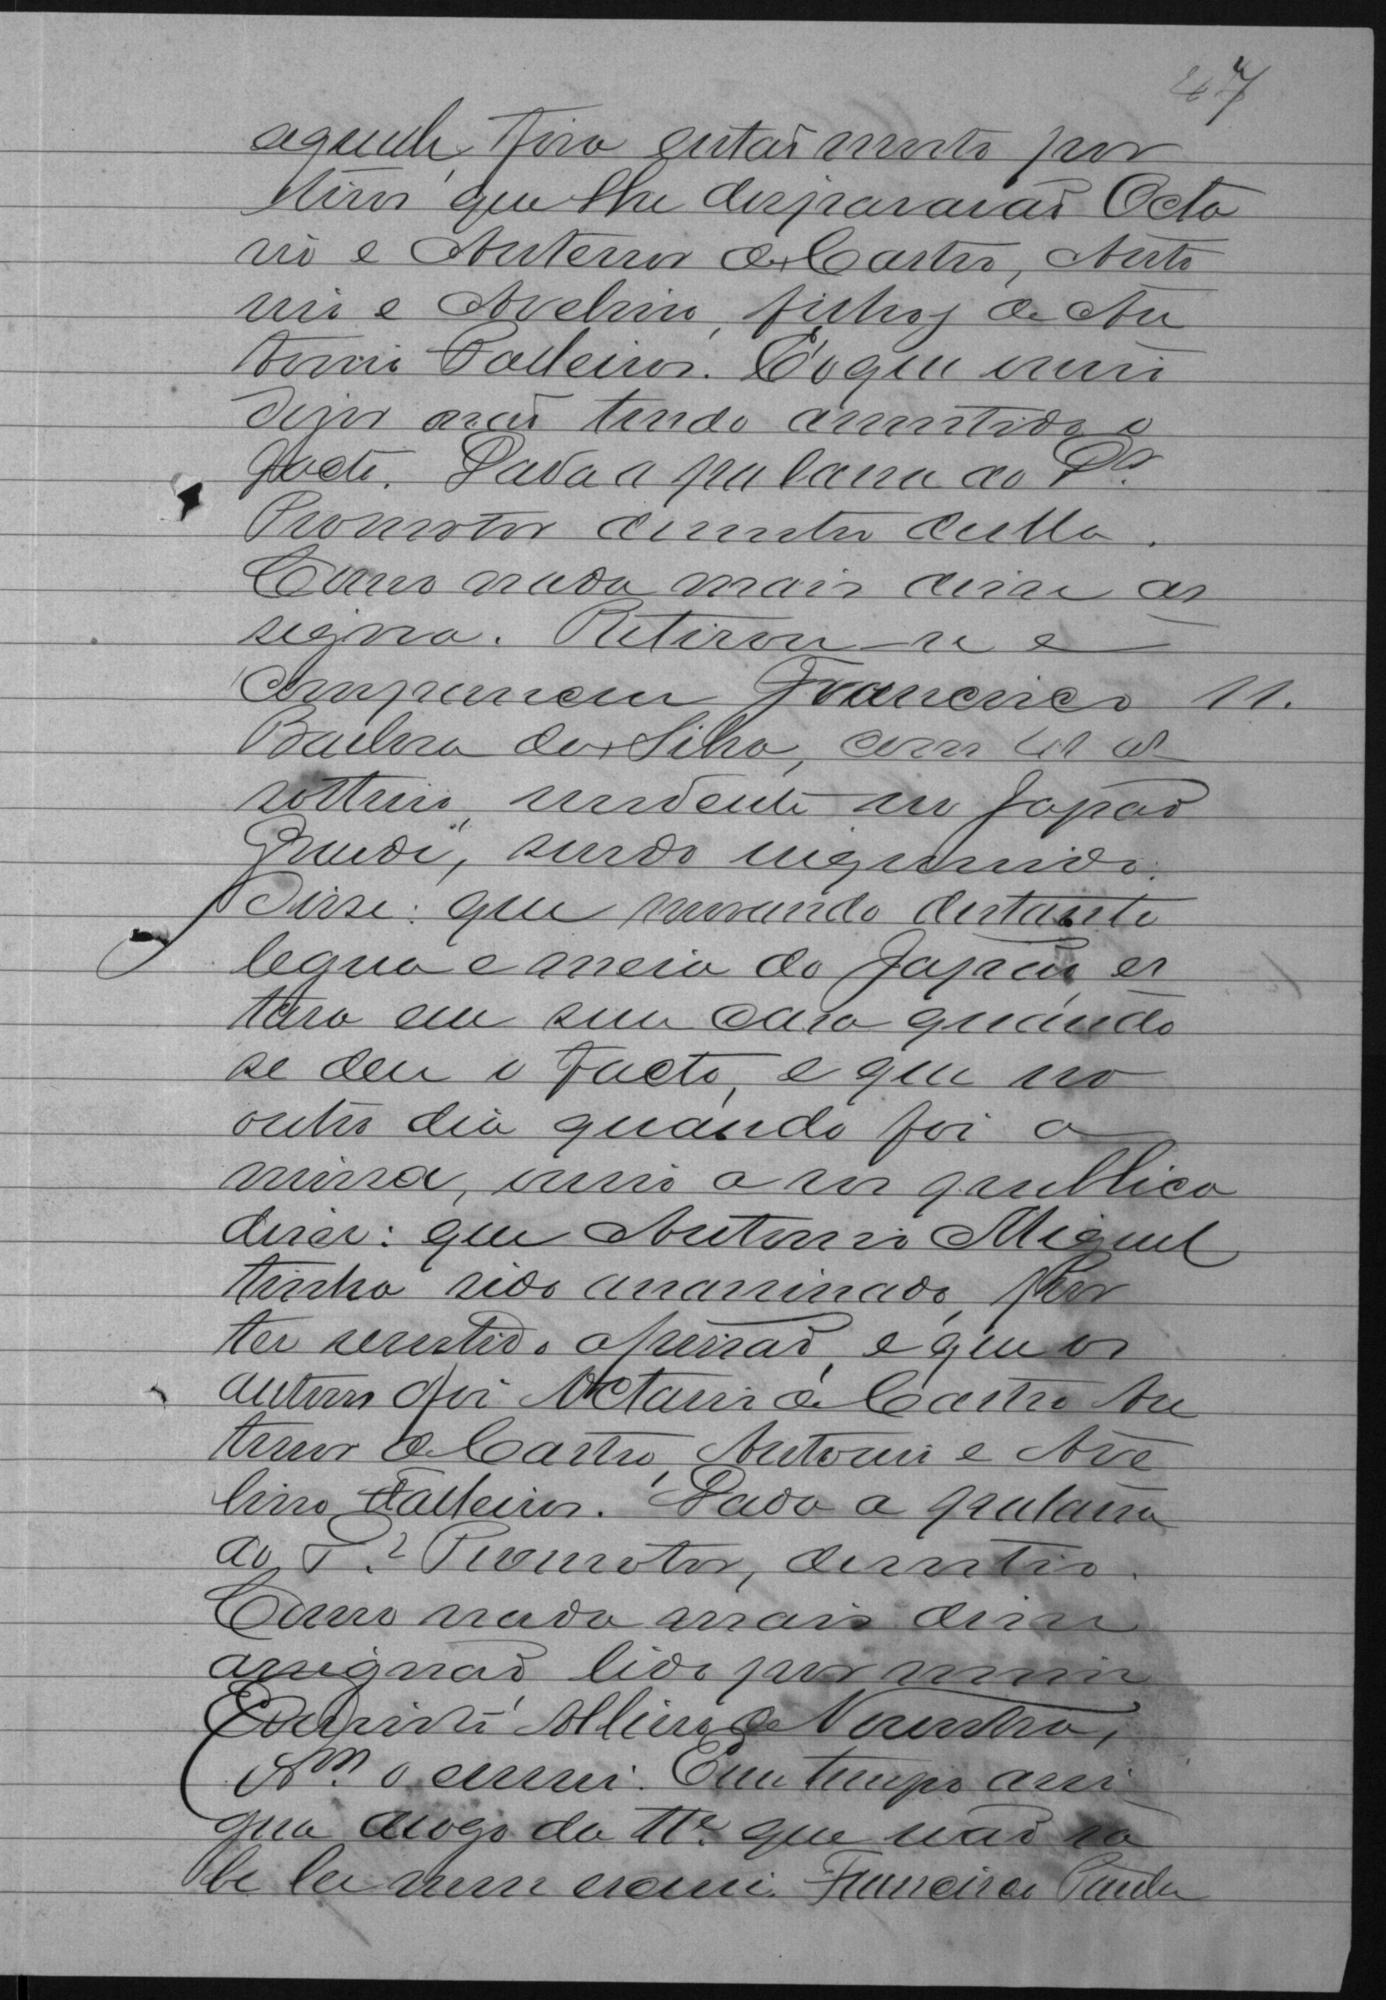 47
aquele, fora entaõ morto por
tiros que lhe dispararaõ Octa
vio e Antenor de Castro, Anto
nio e Avelino, filhos de An
tonio Balleiros. E' o que ouvio
dizer naõ tendo assistido o
facto. Dada a palavra ao Dr.
Promotor desistio della.
Como nada mais disse as
signa. Retirou-se e
compareceu Francisco 11.
Barbosa da Silva, com
solteiro, residente no Japaõ
Grande, sendo inquerido.
Disse: que morando distante
legua e meia do Japaõ, es
tava em sua casa quando
se deu o facto, e que no
outro dia quando foi a
missa, ouvio a vos publica
diser: que Antonio Miguel
tinha sido assassinado, por
ter resistido a prisaõ, e que os
autores foi Octavio de Castro An
tenor de Castro, Antonio e Ave
lino Balleiros. Dada a palavra
ao Dr. Promotor, desistio.
Como nada mais disse
assignaõ lido por mim
Evaristo de Noronha,
o escrevi. Em tempo assi
gna arogo da tta. que naõ sa
be ler nem escrever. Francisco Paula